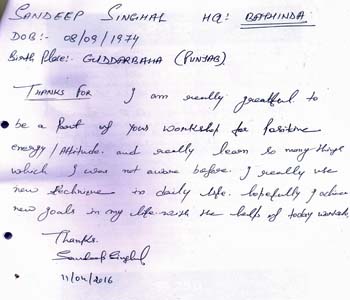 SANDEEP SINGHAL HQ: BATHINDA
DOB:- 08/09/1974
Birth Place:- GIDDARBAHA (PUNJAB)
THANKS FOR I am really greatful to
be a Part of your workshop for Positive
energy / Attitude. and really learn so many things
which I was not aware before. I really use
new technique in daily life. hopefully I achieve
new goals in my life with the help of today workshop
Thanks.
Sandeep Singhal
11/04/2016